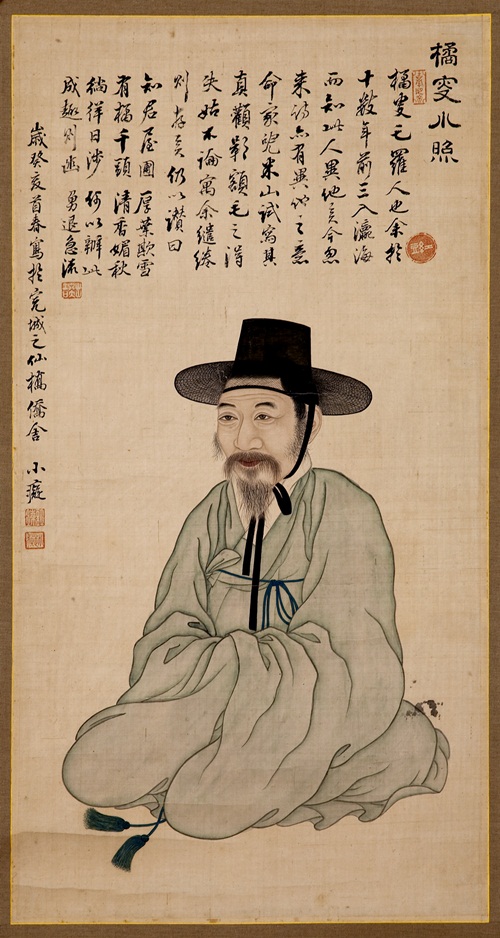 橘叟小照
橘叟乇羅人也余於
十數年前三入瀛海
而知此人異他矣今忽
來訪亦有異他之意
命家兒米山試寫其
真顴影額毛之得
失姑不論寓余繾綣
則存矣仍以讚曰
知君屋圃 厚葉歐雪
有橘千頭 清香媚秋
徜徉日涉 何以辦此
成趣則幽 勇退急流
歲癸亥首春寫於完城之仙橘僑舍 小癡